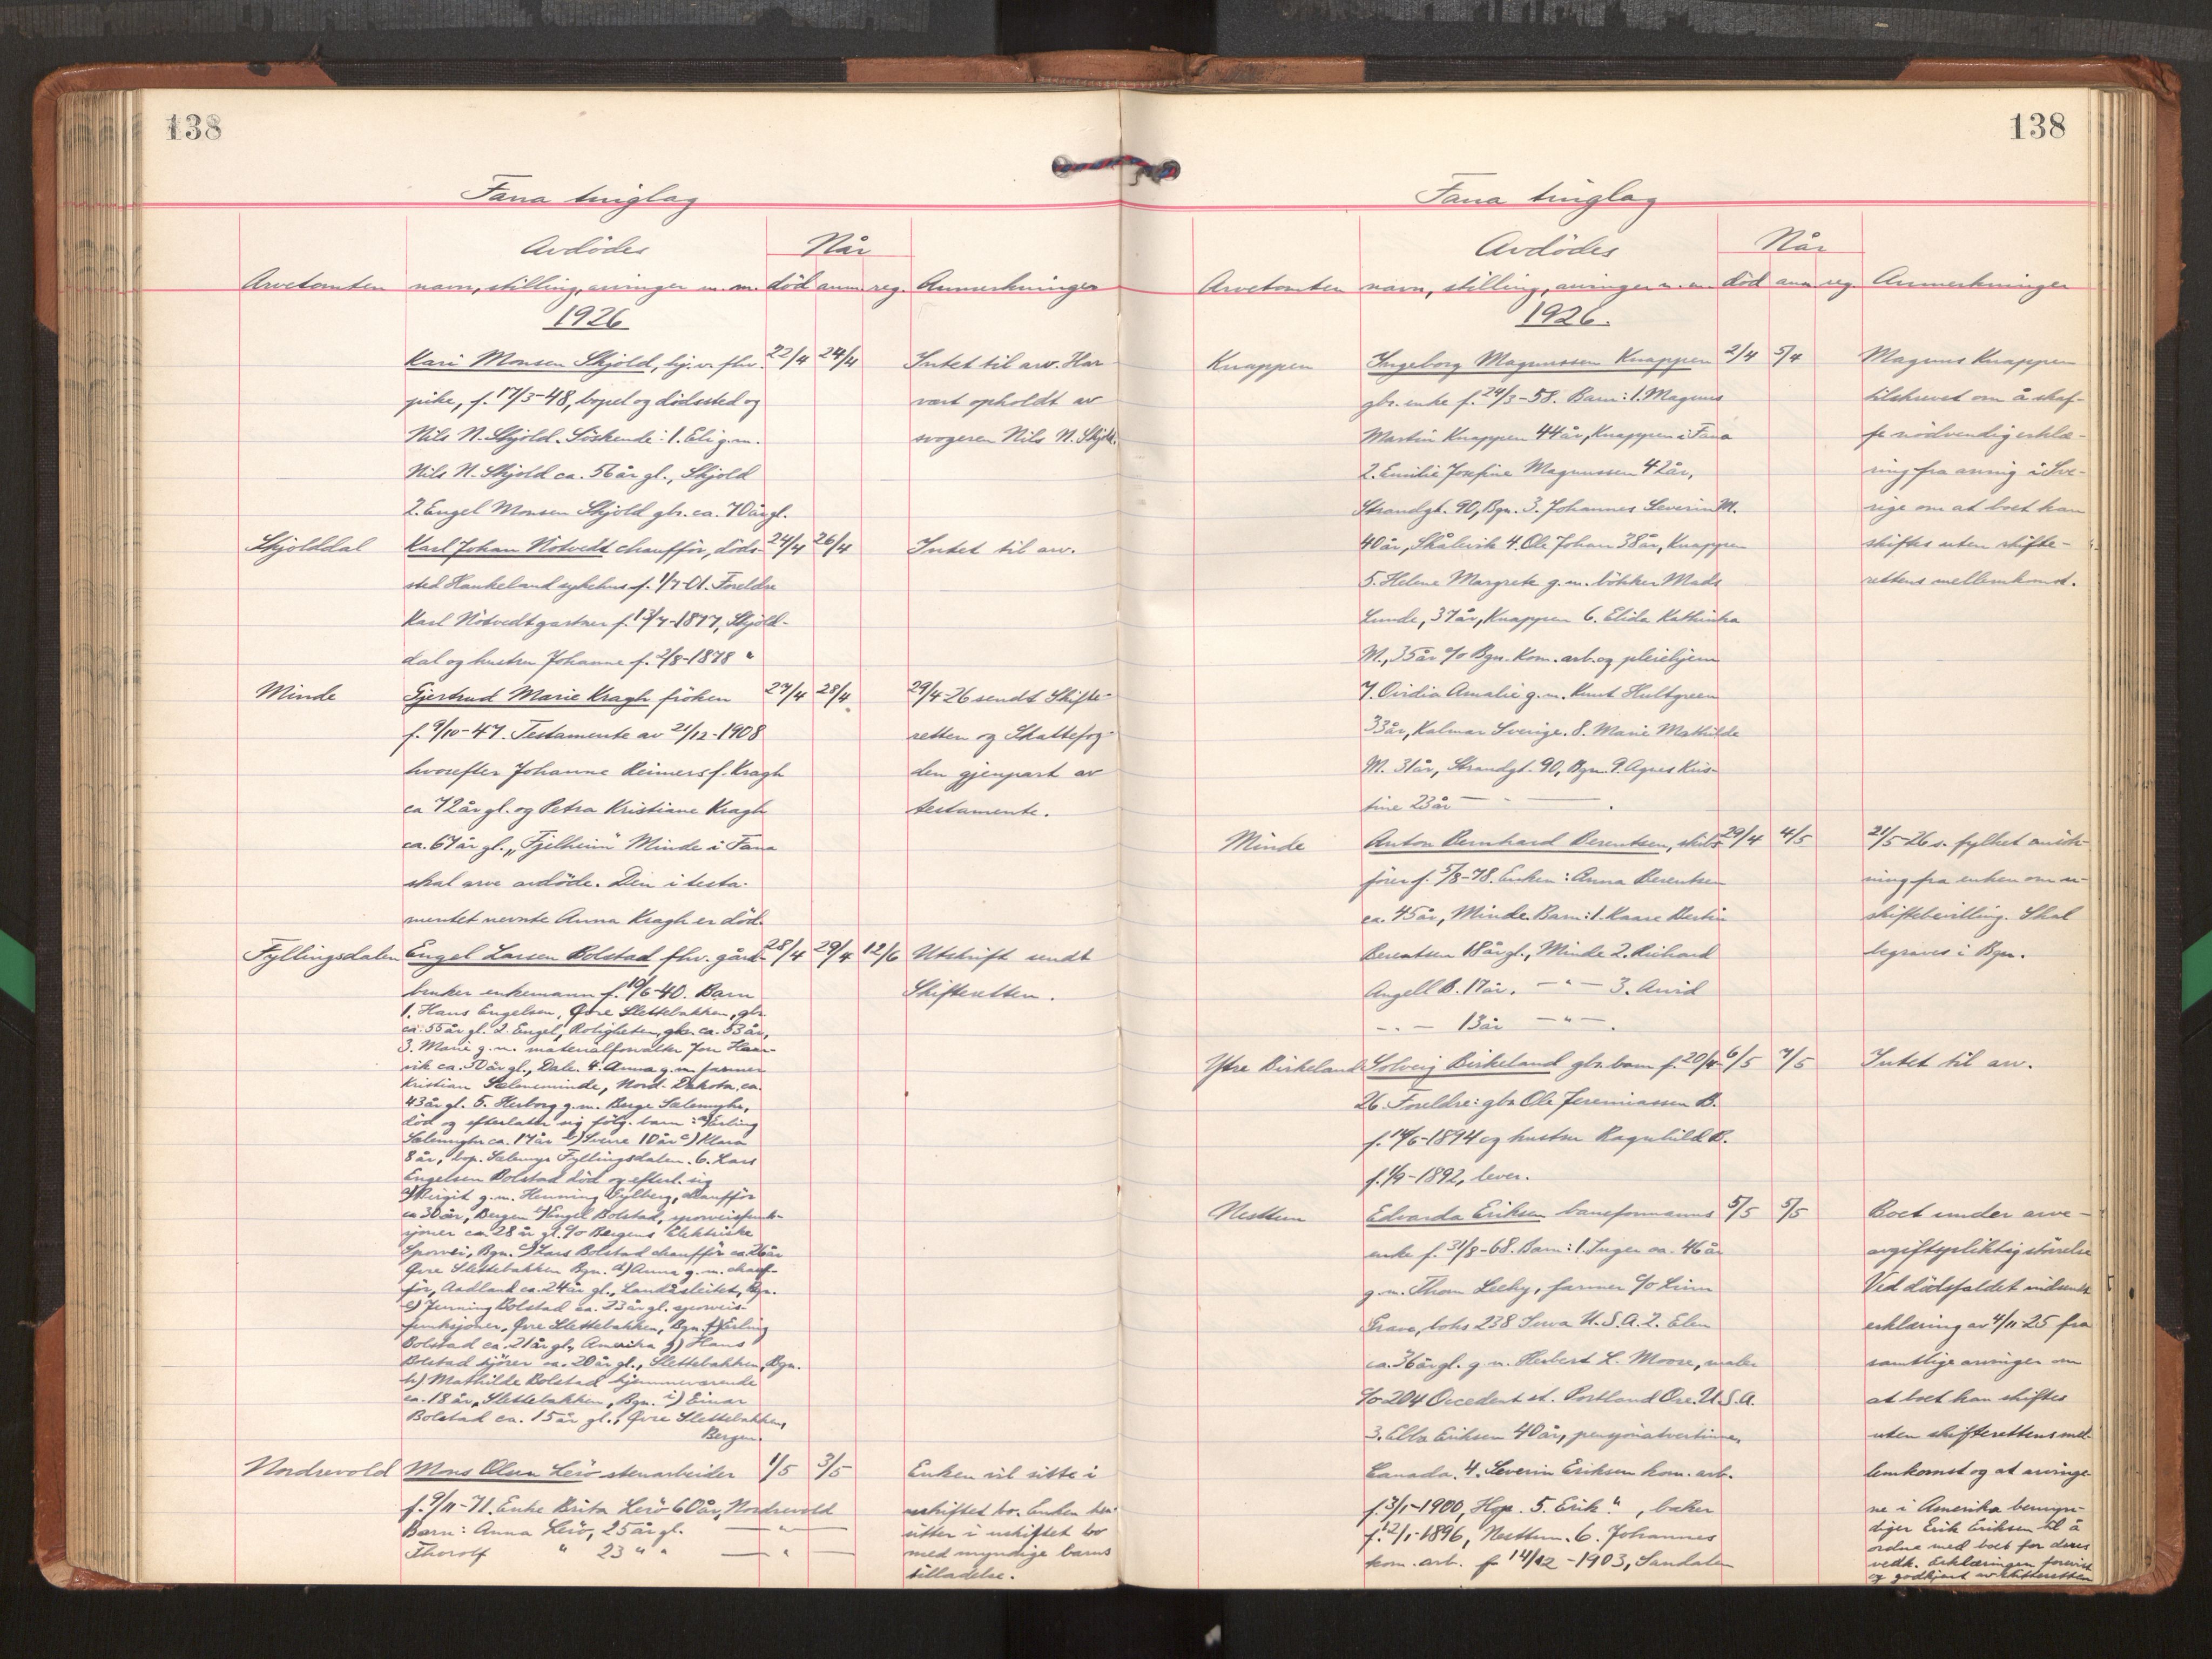 138
Fana tinglag
Avdödes
Når
Arvetomten navn, stilling, arvinger m.m. död anm. reg. Anmerkninger
1926
Kari Monsen Skjold, hj. v. fhv. 22/4 24/4 Intet til arv. Har
pike, f. 17/3-48, bopel og dödssted og vært opholdt av
Nils N. Skjold. Söskende: 1. Eli g.m. svogeren Nils N. Skjold.
Nils N. Skjold ca. 56 år gl., Skjold
2. Engel Monsen Skjold gbr. ca. 70 år gl.
Skjolddal Karl Johan Nötvedt chaufför, döds- 24/4 26/4 Intet til arv.
sted Haukeland sykehus f. 1/7-01. Foreldre
Karl Nötvedt gartner f. 13/7-1877, Skjold-
dal og hustru Johanne f. 2/8-1878 "
Minde Gjertrud Marie Kragh fröken 27/4 28/4 29/4-26 sendt Skifte-
f. 9/10-47. Testamente av 21/12-1908 retten og Skattefog-
hvorefter Johanne Reimers f. Kragh den gjenpart av
ca 72 år gl. og Petra Kristiane Kragh testamente.
ca. 67 år gl. "Fjelheim" Minde i Fana
skal arve avdöde. Den i testa-
mentet nevnte Anna Kragh er död.
Fyllingsdalen Engel Larsen Bolstad fhv. gård- 28/4 29/4 12/6 Utskrift sendt
bruker enkemann f. 10/6-40. Barn Skifteretten.
1. Hans Engelsen, Övre Slettebakken, gbr.
ca. 55 år gl. 2. Engel, Roligheten, gbr. ca. 53 år,
3. Marie g.m. materialforvalter Jon Haar-
vik ca. 50 år gl., Dale. 4. Anna g.m. farmer
Kristian Sæleneminde, Nord-Dakota, ca.
43 år gl. 5. Herborg g.m. Berge Sælemyhr,
död og efterlatt sig fölg. barn: a) Erling
Sælemyhr ca. 17 år b) Sverre 10 år c) Klara
8 år, bop. Sælemyr Fyllingsdalen. 6. Lars
Engelsen Bolstad död og efterl. sig
a) Birgit g.m. Henning Gylberg, chaufför
ca 30 år, Bergen b) Engel Bolstad, sporveisfunk-
sjonær ca. 28 år gl. c/o Bergens Elektriske
Sporvei, Bgn. c) Lars Bolstad chaufför ca. 26 år
Övre Slettebakken Bgn. d) Anna g.m. chauf-
för, Aadland ca. 24 år gl., Landåsleitet, Bgn.
e) Jenning Bolstad ca. 23 år gl. sporveis-
funksjonær, Övre Slettebakken, Bgn. f) Erling
Bolstad ca. 21 år gl., Amerika g) Hans
Bolstad kjörer ca. 20 år gl., Slettebakken, Bgn.
h) Mathilde Bolstad hjemmeværende
ca. 18 år, Slettebakken, Bgn. i) Einar
Bolstad ca. 15 år gl., Övre Slettebakken,
Bergen.
Nordrevold Mons Olsen Lerö stenarbeider 1/5 3/5 Enken vil sitte i
f. 9/11-71. Enke Brita Lerö 60 år, Nordrevold uskiftet bo. Enken hen-
Barn: Anna Lerö, 25 år gl. — " — sitter i uskiftet bo
Thorolf " 23 " " — " — med myndige barns
tilladelse.
138
Fana tinglag
Avdödes
Når
Arvetomten navn, stilling, arvinger m.m. död anm reg. Anmerkninger
1926.
Knappen Ingeborg Magnussen Knappen 2/4 5/4 Magnus Knappen
gbr. enke f. 24/3-58. Barn: 1. Magnus tilskrevet om å skaf-
Martin Knappen 44 år, Knappen i Fana fe nödvendig erklæ-
2. Emilie Josefine Magnussen 42 år, ring fra arving i Sve-
Strandgt. 90, Bgn. 3. Johannes Severin M. rige om at boet kan
40 år, Skålevik 4. Ole Johan 38 år, Knappen skiftes uten skifte-
5. Helene Margrete g.m. bökker Mads rettens mellemkomst.
Lunde, 37 år, Knappen 6. Elida Kathinka
M., 35 år c/o Bgn. Kom. arb. og pleiehjem
7. Ovidia Amalie g.m. Knut Hultgreen
33 år, Kalmar Sverige. 8. Marie Mathilde
M. 31 år, Strandgt. 90, Bgn. 9. Agnes Kris-
tine 23 år — " — .
Minde Anton Bernhard Berentsen, skibs- 29/4 4/5 21/5-26 s. fylket ansök-
förer f. 5/8-78. Enken: Anna Berentsen ning fra enken om u-
ca. 45 år, Minde. Barn: 1. Kaare Bertin skiftebevilling. Skal
Berentsen 18 år gl., Minde 2. Richard begraves i Bgn.
Angell B. 17 år. — " — 3. Arvid
— " — 13 år — " — .
Ytre Birkeland Solveig Birkeland gbr. barn f. 20/4- 6/5 7/5 Intet til arv.
26. Foreldre: gbr. Ole Jeremiassen B.
f. 14/6-1894 og hustru Ragnhild B.
f. 1/9-1892, lever.
Nesttun Edvarda Eriksen baneformanns 5/5 5/5 Boet under arve-
enke f. 31/8-68. Barn: 1. Inger ca. 46 år avgiftspliktig störrelse
g.m. Thom Leehy, farmer c/o Linn Ved dödsfaldet innsendt
Grave, boks 238 Iowa U.S.A. 2. Elen erklæring av 4/11 25 fra
ca. 36 år gl. g.m. Herbert L. Moore, maler samtlige arvinger om
c/o 204 Occedent st. Portland Ore. U.S.A. at boet kan skiftes
3. Ella Eriksen 40 år, pensjonatvertinne, uten skifterettens mel-
Canada. 4. Severin Eriksen kom. arb. lemkomst og at arvinge-
f. 3/1-1900, Hop. 5. Erik " , baker ne i Amerika bemyn-
f. 12/1-1896, Nesttun. 6. Johannes diger Erik Eriksen til å
kom. arb. f. 14/12-1903, Sandalen ordne med boet for deres
vedk. Erklæringen forevist
og godkjent av skifteretten